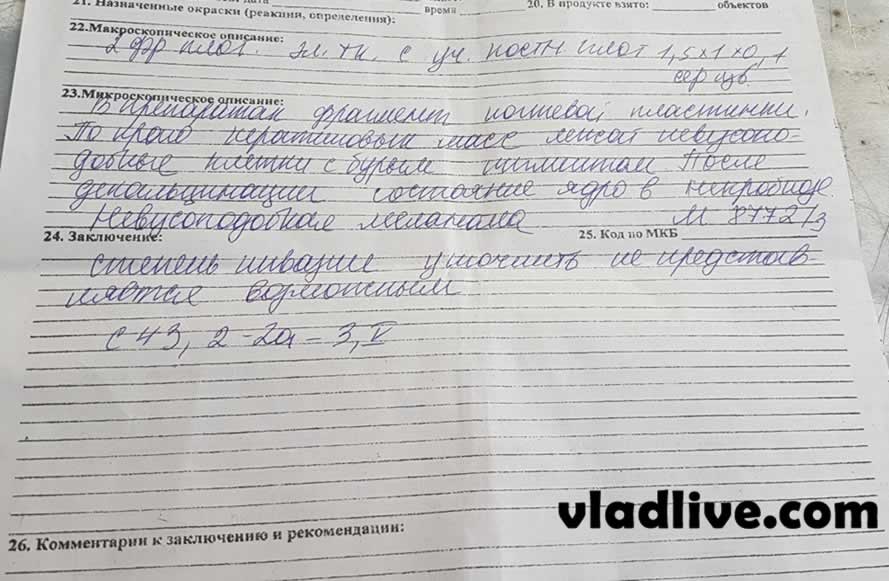 21. Назначенные окраски (реакции, определения):
время 20. В продукте взято: объектов
22.Макроскопическое описание:
2 фр плот. эл. тк. с уч. ногтн. плот 1,5х1х0,1
сер цв.
23.Микроскопическое описание:
В препаратах фрагмент ногтевой пластинки.
По краю кератиновых масс лежат невусопо-
добные клетки с бурым пигментом После
декальцинации состояние ядро в некробиозе.
Невусоподобная меланома М 8772/3
24. Заключение: 25. Код по МКБ
степень инвазии уточнить не представ-
ляется возможным
с 43, 2 - 2а - 3, V
26. Комментарии к заключению и рекомендации:
vladlive.com